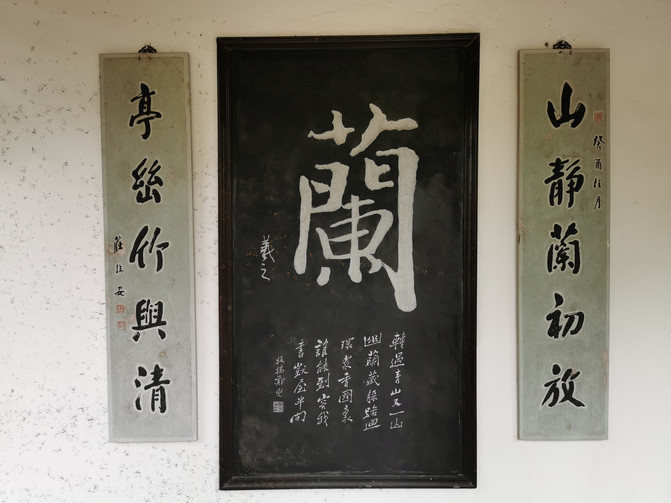 山靜蘭初放
癸酉桂月
蘭
羲之
轉過青山又一山
幽蘭藏躲路迴
環衆香國裏
誰能到容我
書獃屋半間
板橋鄭燮
亭幽竹與清